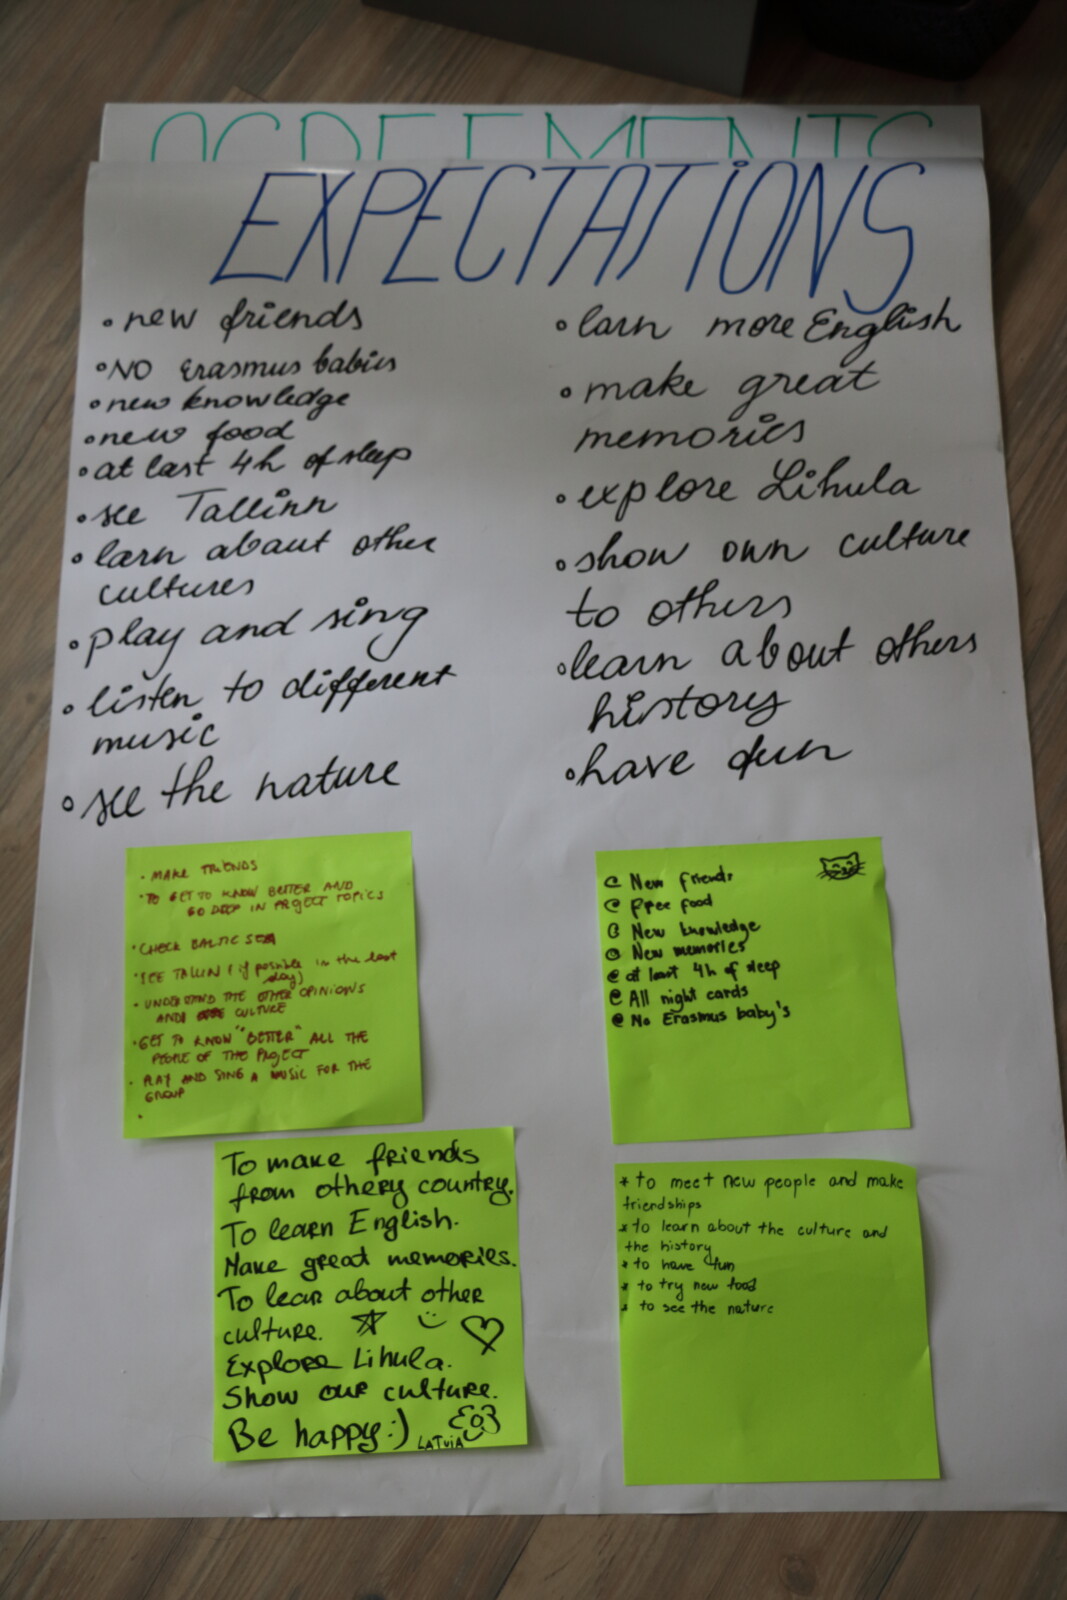 AGREEMENTS
EXPECTATIONS
• new friends
• NO Erasmus babies
• new knowledge
• new food
• at last 4h of sleep
• see Tallinn
• larn abaut other
cultures
• play and sing
• listen to different
music
• see the nature
• larn more English
• make great
memories
• explore Lihula
• show own culture
to others
• learn about others
history
• have fun
• MAKE FRIENDS
• TO GET TO KNOW BETTER AND
GO DEEP IN PROJECT TOPICS
• CHECK BALTIC SEA
• SEE TALLIN (if possible in the last
day)
• UNDERSTAND THE OTHER OPINIONS
AND CULTURE
• GET TO KNOW "BETTER" ALL THE
PEOPLE OF THE PROJECT
• PLAY AND SING A MUSIC FOR THE
GROUP
•
New friends
free food
New knowledge
New memories
at last 4h of sleep
All night cards
No Erasmus baby's
To make friends
from othery country.
To learn English.
Make great memories.
To lear about other
culture.
Explore Lihula.
Show our culture.
Be happy :)
LATVIA
* to meet new people and make
friendships
* to learn about the culture and
the history
* to have fun
* to try new food
* to see the nature